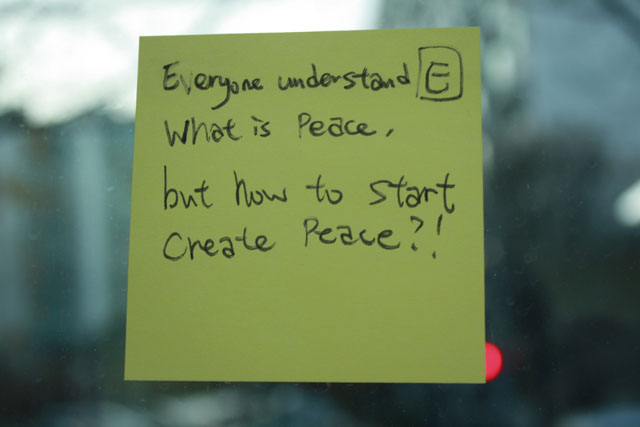 Everyone understand E
What is Peace,
but how to start
Create Peace?!